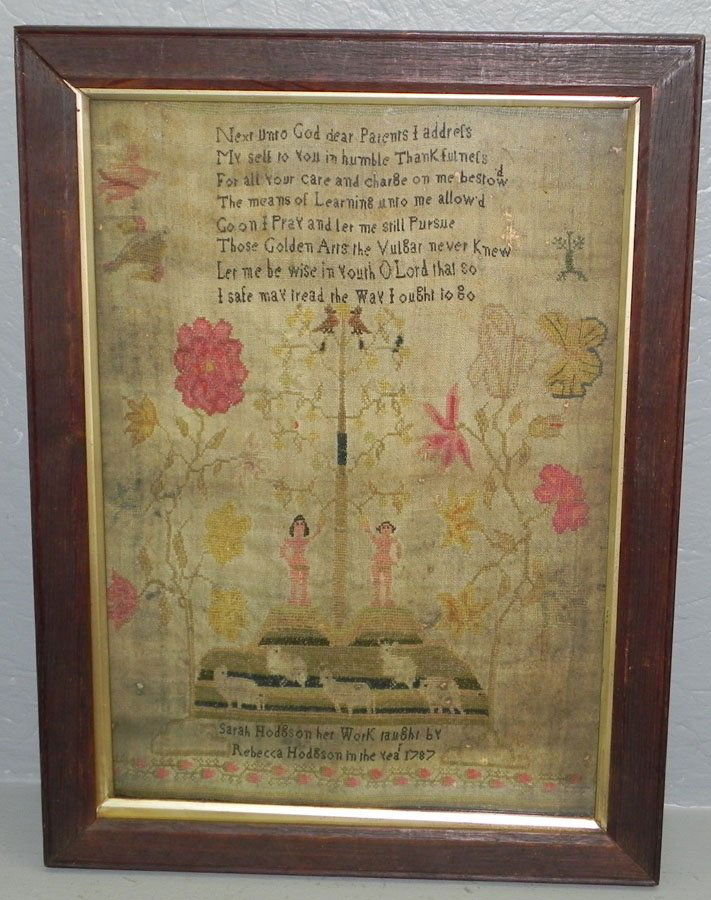 Next unto God dear Parents I addreſs
My self to you in humble Thankfulneſs
For all your care and charge on me bestow'd
The means of Learning unto me allow'd
Go on I Pray and let me still Pursue
Those Golden Arts the Vulgar never Knew
Let me be wise in youth O Lord that so
I safe may tread the Way I ought to go
Sarah Hodgson her Work taught by
Rebecca Hodgson in the year 1787